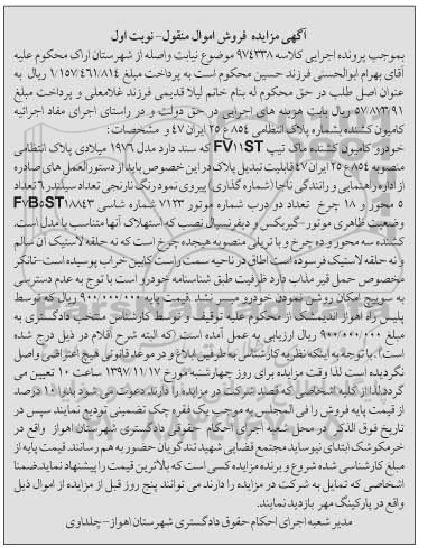 آگهی مزایده فروش اموال منقول- نوبت اول
بموجب پرونده اجرایی کلاسه ۹۷۴۳۳۸ موضوع نیابت واصله از شهرستان اراک محکوم علیه
آقای بهرام ابوالحسنی فرزند حسین محکوم است به پرداخت مبلغ ۱/۱۵۷/۴۶۱/۸۱۴ ریال به
عنوان اصل طلب در حق محکوم له بنام خانم لیلا قدیمی فرزند غلامعلی و پرداخت مبلغ
۵۷/۸۷۳/۹۱ ریال بابت هزینه های اجرایی در حق دولت و در راستای اجرای مفاد اجرائیه
کامیون کشنده بشماره پلاک انتظامی ۸۵۴ ع ۲۵ ایران ۴۷ و مشخصات:
خودرو کامیون کشنده ماک تیپ FV۱۱ST که سند دارد مدل ۱۹۷۶ میلادی پلاک انتظامی
منصوبه ۸۵۴ ع ۲۵ ایران ۴۷ قابلیت تبدیل پلاک در این خصوص باید از دستورالعمل های صادره
از اداره راهنمایی و رانندگی ناجا (شماره گذاری) پیروی نمود رنگ نارنجی تعداد سیلندر ۶ تعداد
۵ محور و ۱۸ چرخ تعداد دو درب شماره موتور ۷۱۲۳ شماره شاسی F۷B۵ST۱۸۸۴۳
وضعیت ظاهری موتور-گیربکس و دیفرنسیال نصب که استهلاک آنها متناسب با مدل است.
کشنده سه محور و ده چرخ و با تریلی منصوبه هیجده چرخ است که نه حلقه لاستیک آن سالم
و نه حلقه لاستیک فرسوده است اطاق در ناحیه سمت راست کابین خراب پوسیده است-تانکر
مخصوص حمل قیر مذاب دارد ظرفیت طبق شناسنامه خودرو است با توجه به عدم دسترسی
به سوییچ امکان روشن نمودن خودرو میسر نشد. قیمت پایه ۹۰۰/۰۰۰/۰۰۰ ریال که توسط
پلیس راه اهواز اندیمشک از محکوم علیه توقیف و توسط کارشناس منتخب دادگستری به
مبلغ ۹۰۰/۰۰۰/۰۰۰ ریال ارزیابی به عمل آمده است (که البته شرح اقلام در ذیل درج شده
است). با توجه به اینکه نظریه کارشناس به طرفین ابلاغ و در موعد قانونی هیچ اعتراضی واصل
نگردیده است لذا وقت مزایده برای روز چهارشنبه مورخ ۱۳۹۷/۱۱/۱۷ ساعت ۱۰ تعیین می
گردد لذا از کلیه اشخاصی که قصد شرکت در مزایده را دارند دعوت می شود بدوا ۱۰ درصد
از قیمت پایه فروش را فی المجلس به موجب یک فقره چک تضمینی تودیع نمایند سپس در
تاریخ فوق الذکر در محل شعبه اجرای احکام حقوقی دادگستری شهرستان اهواز واقع در
خرمکوشک ابتدای نیو ساید مجتمع قضایی شهید تندگویان حضور به هم رسانند. قیمت پایه از
مبلغ کارشناسی شده شروع و برنده مزایده کسی است که بالاترین قیمت را پیشنهاد نماید ضمنا
اشخاصی که تمایل به شرکت در مزایده را دارند می توانند پنج روز قبل از مزایده از اموال ذیل
واقع در پارکینگ مهر بازدید نمایند.
مدیر شعبه اجرای احکام حقوق دادگستری شهرستان اهواز- چلداوی